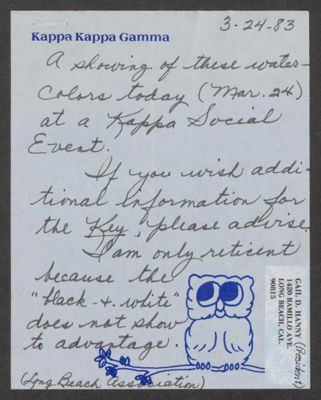 3-24-83
Kappa Kappa Gamma
A showing of these water-
colors today (Mar. 24)
at a Kappa Social
Event.
If you wish addi-
tional information for
the Key, please advise.
I am only reticent
because the
"black & white"
does not show
to advantage.
(Long Beach Association)
GAIL D. HANNY (President)
1420 RAMILLO AVE.
LONG BEACH, CAL.
90815